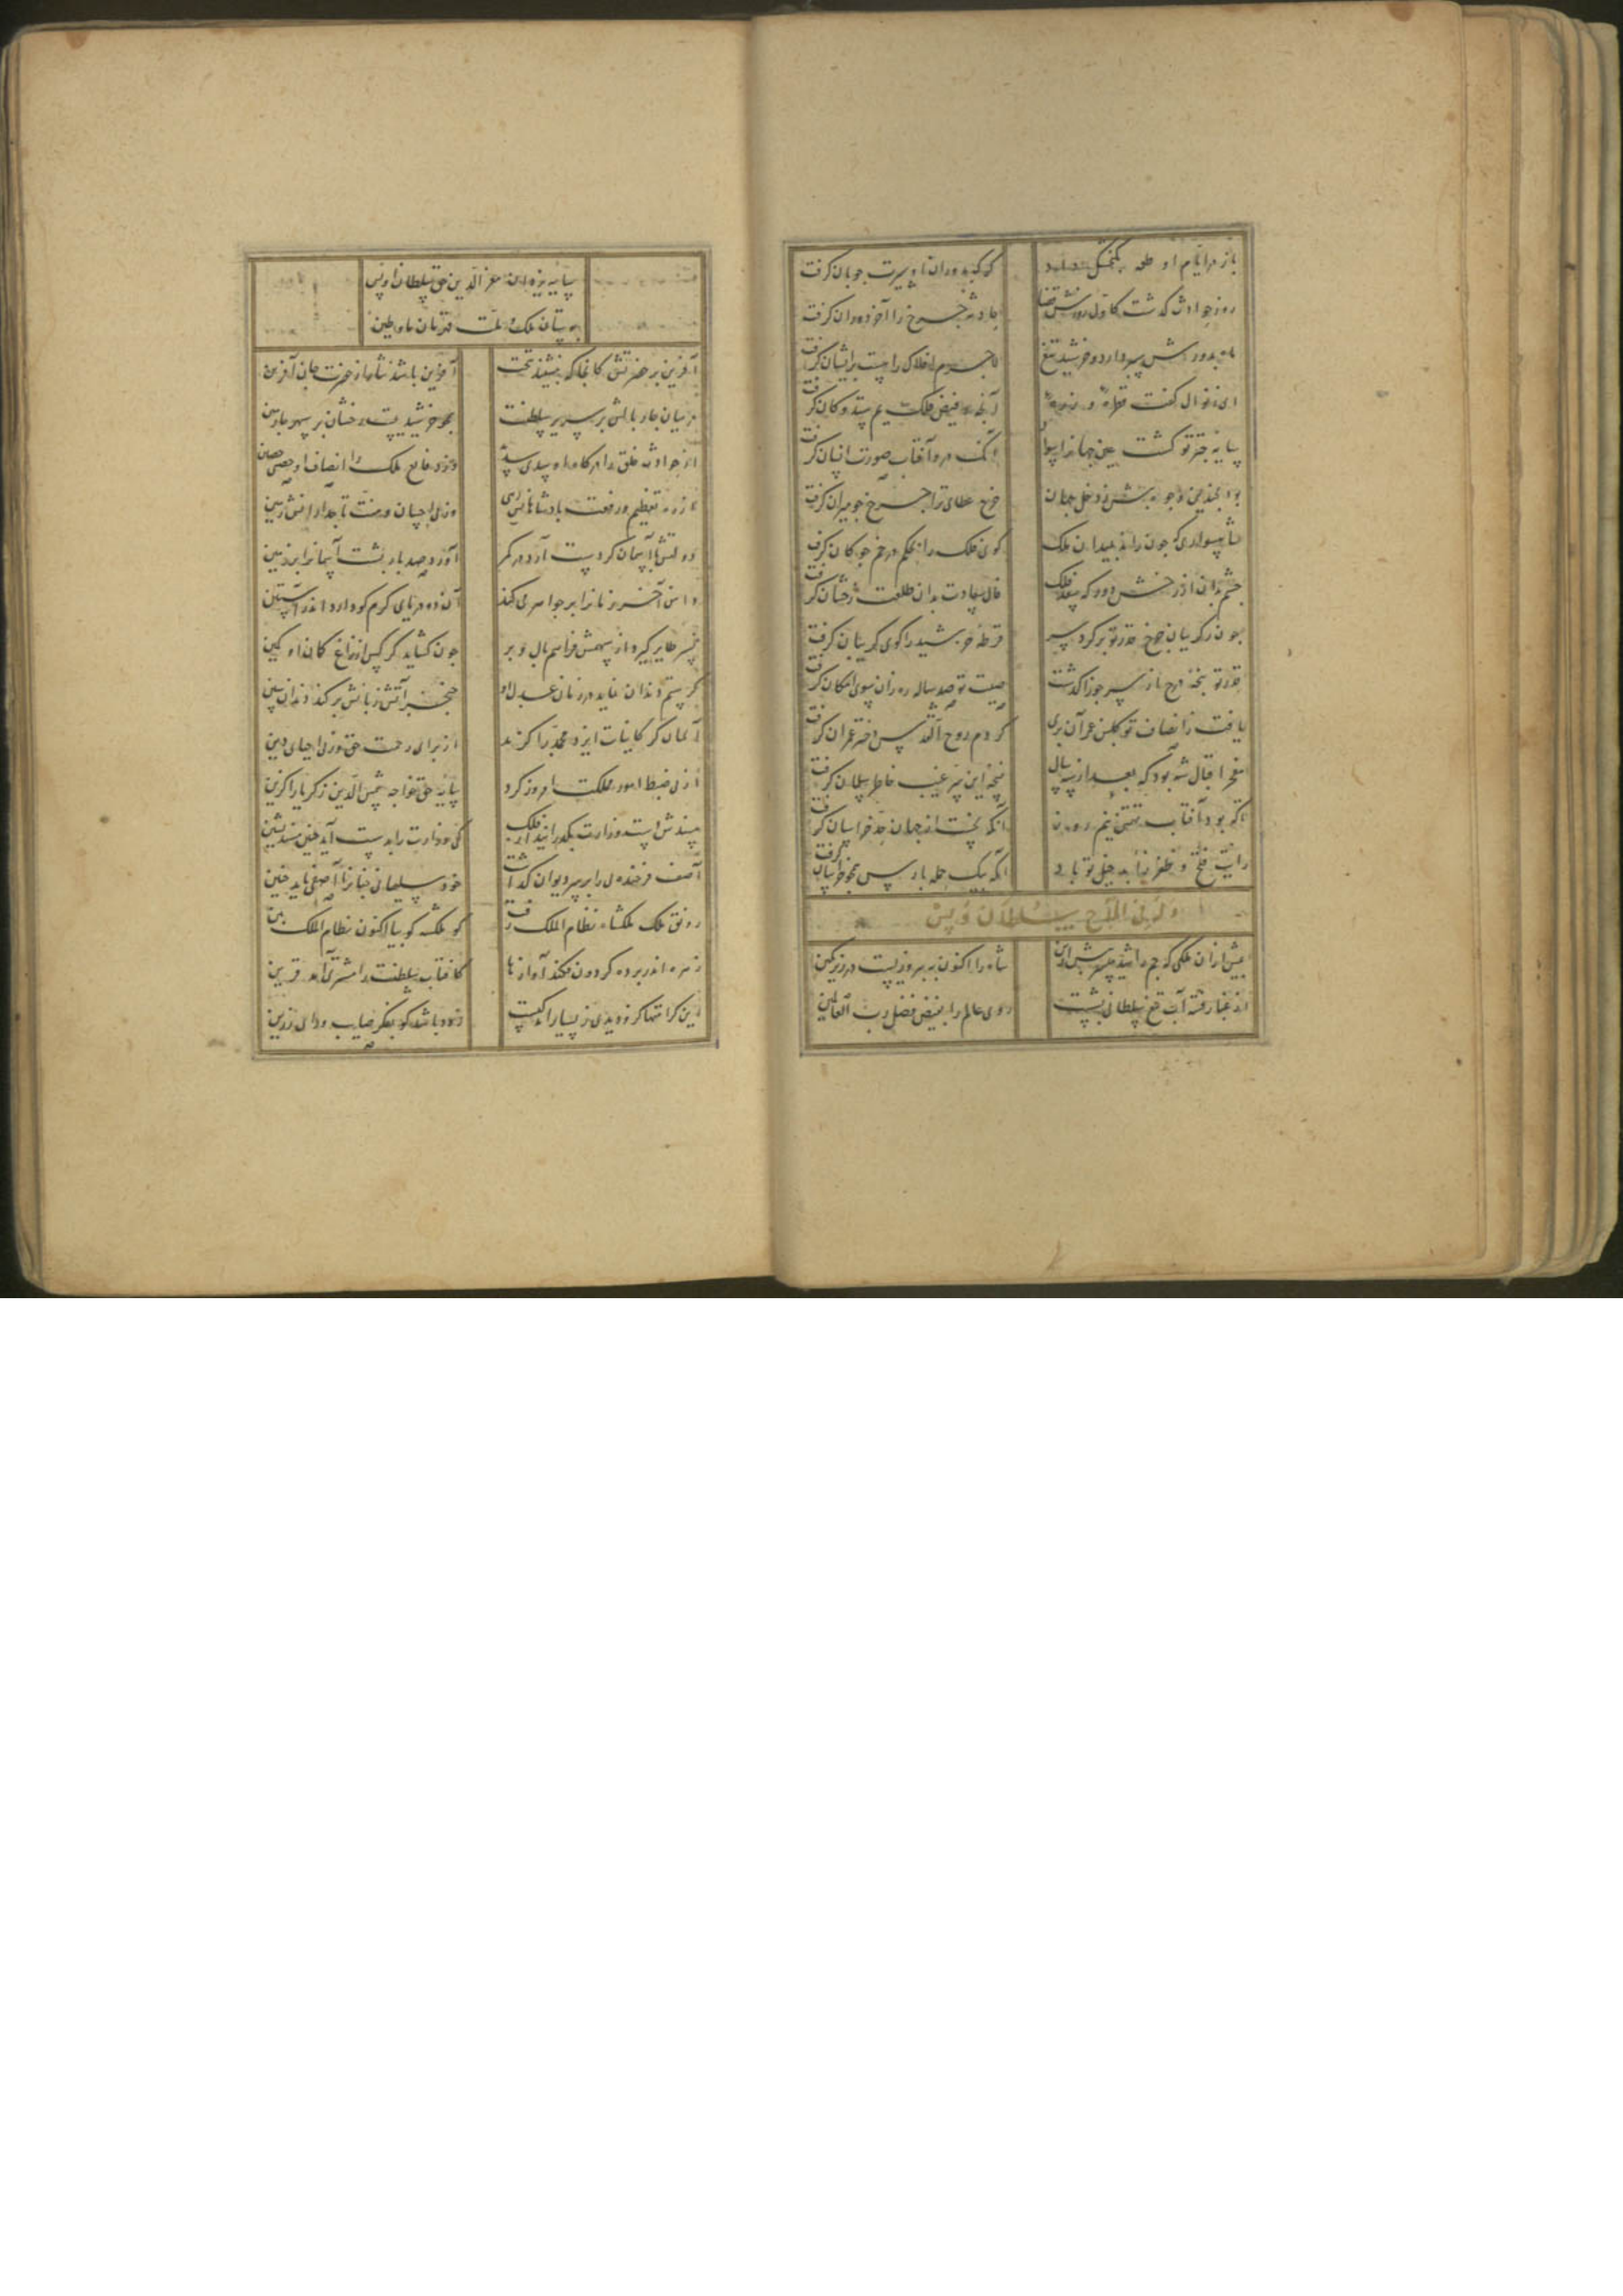 باز در ایام او طعمه
کرک بدوران او سیرت چوبان کرفت
روز حوادث کذشت کاول روزش قضا
حادثه چرخ را آخر دوران کرفت
ماه بدورش سپر دارد و خورشید تیغ
لاجرم افلاک را هیبت ایشان کرفت
ای ز نوال کفت قطره و
فیض فلک یم ستد و کان کرفت
سایه چتر تو کشت عین جهان را سواد
آنک درو آفتاب صورت انسان کرفت
بود بچندین وجوه دخل جهان
خرج عطای ترا چرخ جو میزان کرفت
شاهسواری که چون راند بمیدان ملک
کوی فلک را بحکم در خم چوکان کرفت
چشم بد ان از رخش دور که سعد فلک
فال سعادت بدان طلعت رخشان کرفت
چون ز کریبان چرخ قدر تو بر کرد سر
قرطه خورشید را کوی کریبان کرفت
قدر تو نه درج باز سر جوزا کذشت
صیت تو صد ساله ره زان سوی امکان کرفت
یافت ز انصاف تو کلبن عمر آن بری
کز دم روح القدس دختر عمران کرفت
فخر اقبال شه بود که بعد از سه سال
نسخه این سر غیب خاطر سلمان کرفت
تا که بود آفتاب نیم روز
آنکه نخست از جهان حد خراسان کرفت
رایت فتح و ظفر زاید خیل تو باد
آنکه بیک حمله پارس بخراسان کرفت
وله فی المدح سلطان اویس
پیش ازان ملکی که جم را شد میسر پیش ازین
شاه را اکنون به پیروزیست در زیر نکین
از غبار فتنه آب تیغ سلطانی بشست
روی عالم را بفیض فضل رب العالمین
سایه یزدان معز الدین حق سلطان اویس
بوستان ملک و ملت قهرمان ماء و طین
آفرین بر حضرتش کانجا که بنشیند بتخت
آفرین باشد نثارش از حضرت جان آفرین
در میان چار بالش بر سریر سلطنت
همچو خورشیدیست رخشان بر سپهر چارمین
از حوادث خلق را درکاه او سدی سدید
وز وقایع ملک را انصاف او حصنی حصین
از ره تعظیم و رفعت پادشاهانش رهی
وز پی احسان و منت تاجدارانش رهین
دولتش با آسمان کر دست آرد در کمر
آورد صد بار پشت آسمانرا بر زمین
دامن آخر زمان را پر جواهر می کند
آن دو دریای کرم کو دارد اندر آستین
نسر طایر کیرد از سهمش فراهم بال و پر
چون کشاید کرکس از زاغ کمان او کمین
کر ستم دندان نماید در زمان عدل او
خنجر آتش زبانش بر کند دندان سین
آسمان کر کاینات ایزد محمد را کزید
از برای رحمت حق وز پی احیای دین
از پی ضبط امور مملکت امروز کرد
سایه حق خواجه شمس الدین زکریا را کزین
مسندش است وزارت بکذراند از فلک
کی وزارت را بدست آید چنین مسند نشین
آصف فرخنده پی را بر سر دیوان کذاشت
خود سلیمانی چنانرا آصفی باید چنین
رونق ملک ملکشاه نظام الملک رفت
کو ملکشه کو بیا اکنون نظام الملک بین
زهره اندر پرده کردون فکند آوازها
کافتاب سلطنت را مشتری آمد قرین
این کرامتها کزو دیدی ز بسیار اندکیست
زود باشد کو بفکر صایب و رای رزین